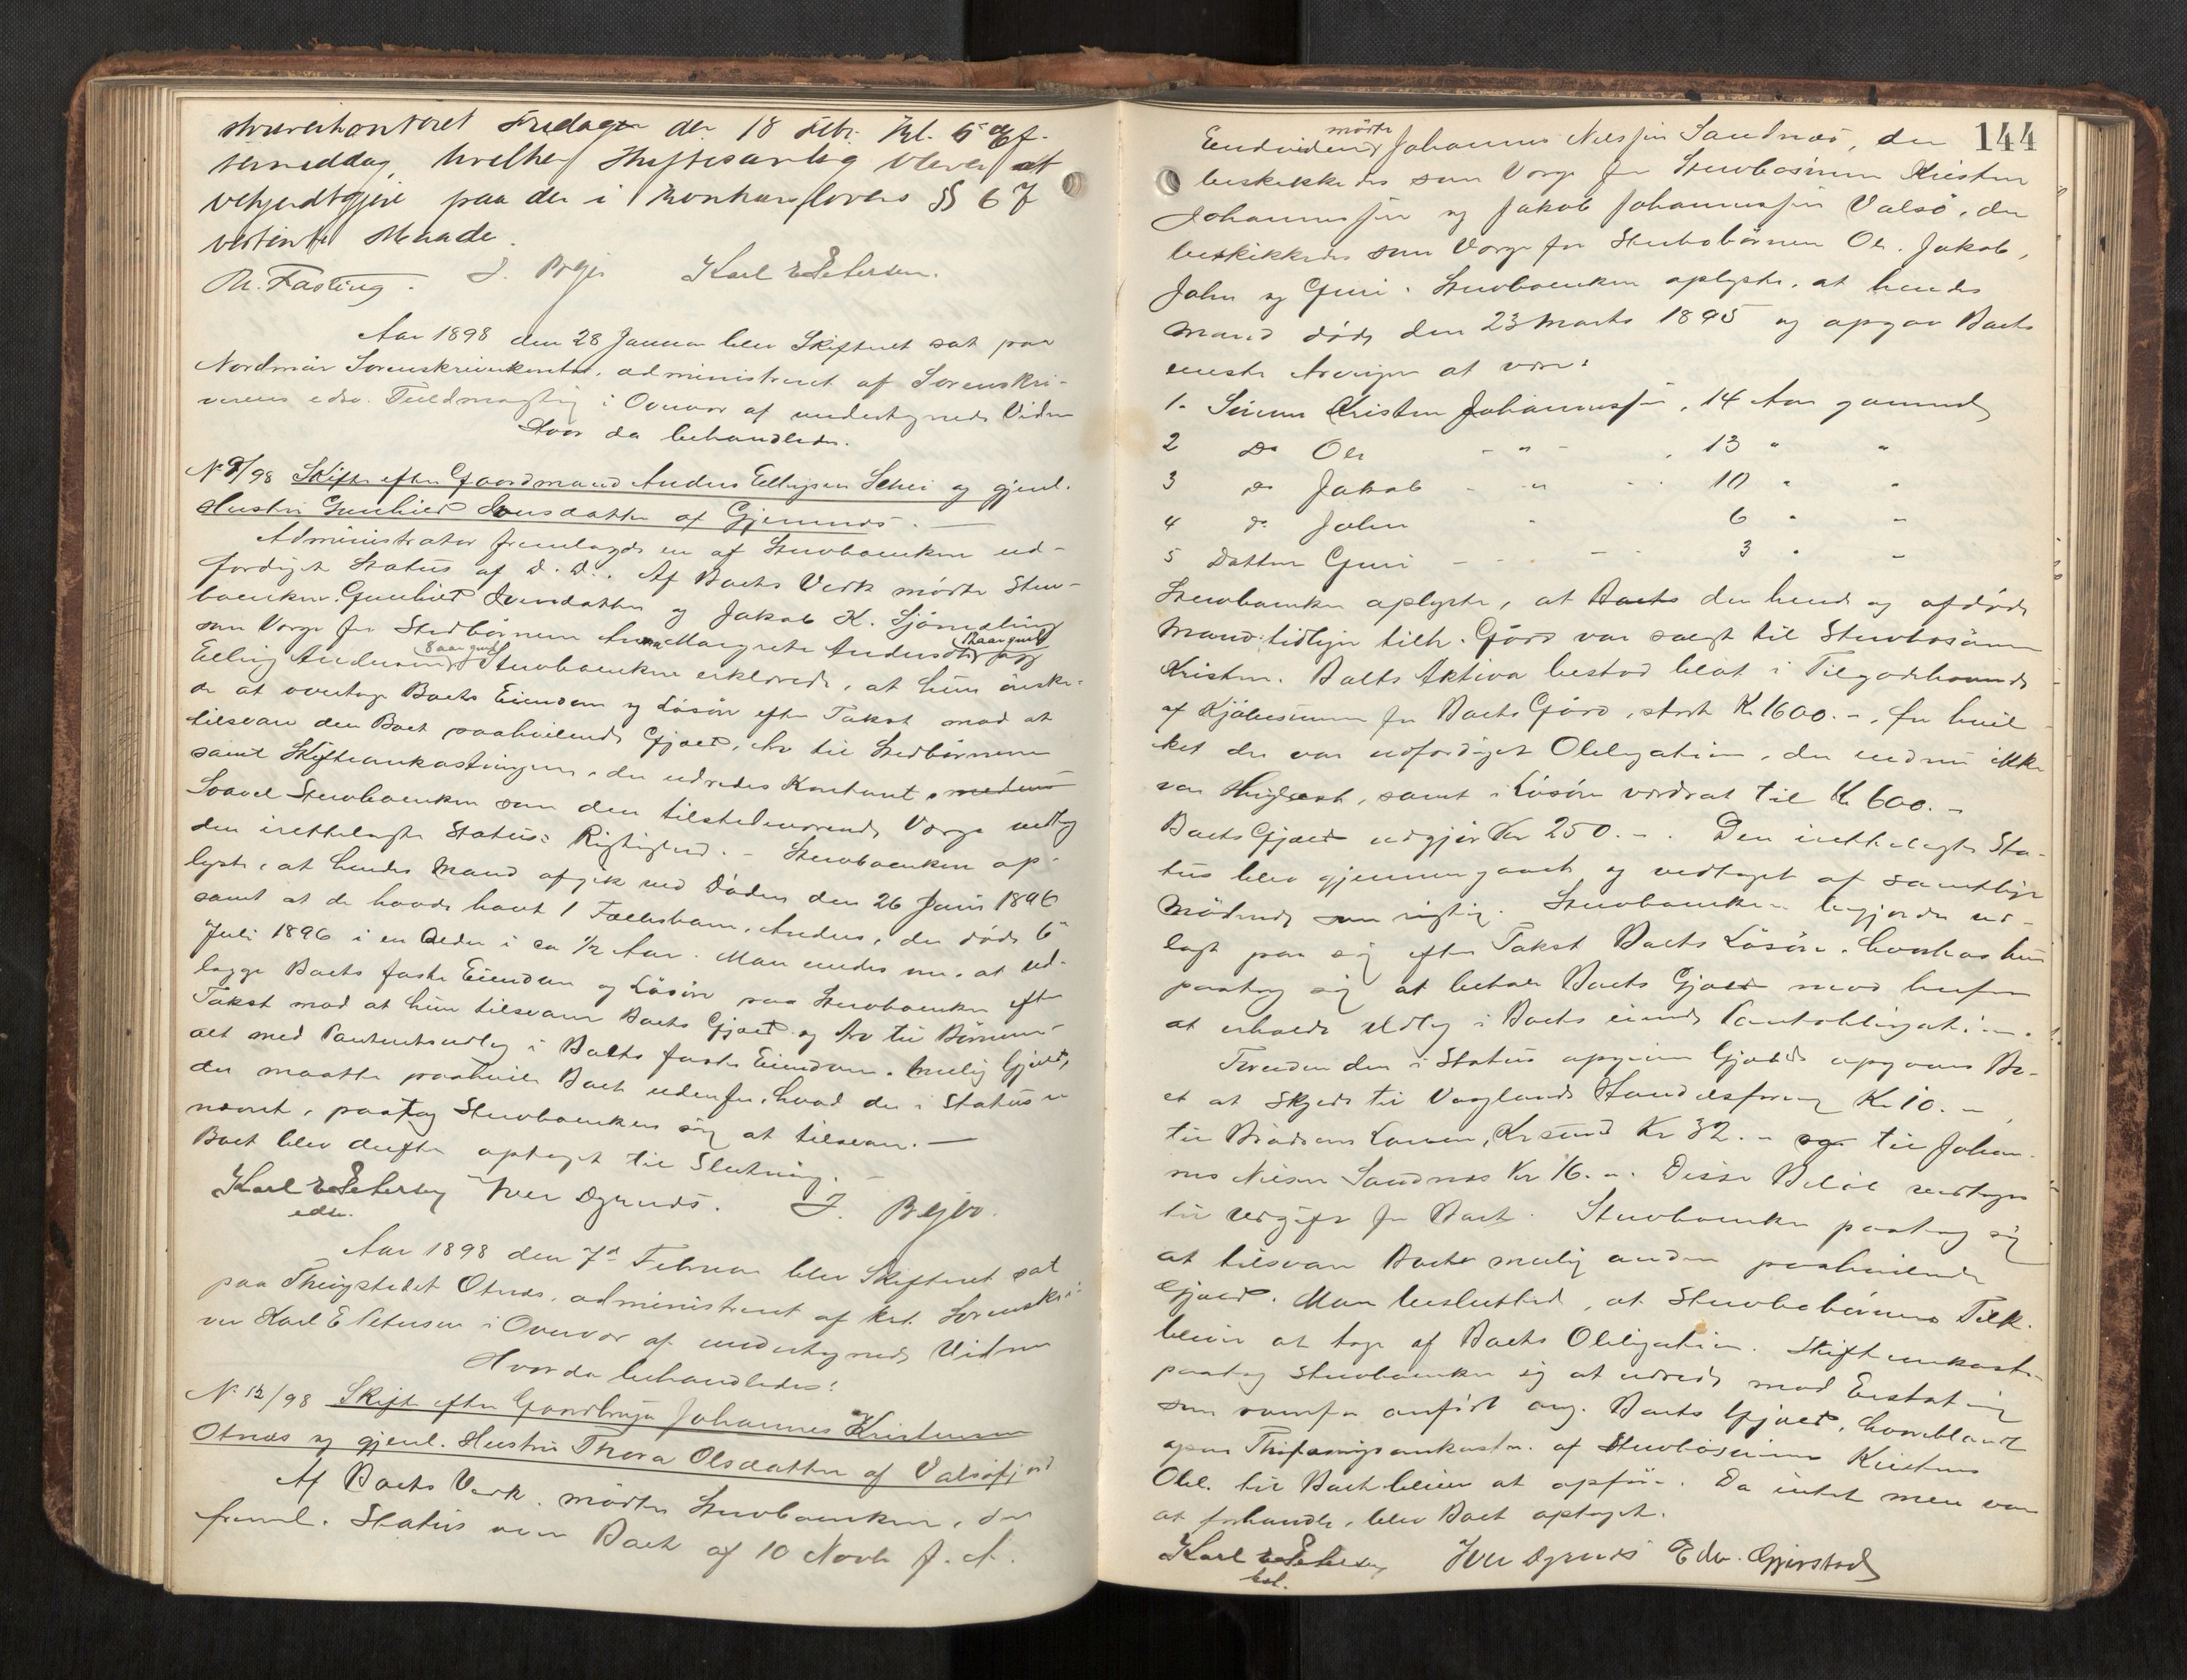 Fredagen den 18 Febr. Kl. 5 Ef-
termiddag, hvilken Skiftesamling bliver at
bekjendtgjøre paa den i Konkurslovens §§ 6 7
bestemte Maade.
M. Fasting. J. Karl E Petersen.
Aar 1898 den 28 Januar blev Skifteret sat paa
Nordmør Sorenskriverkontor, administreret af Sorenskri-
verens edsv. Fuldmægtig i Overvær af undertegnede Vidner
Hvor da behandledes.
No 9/98 Skifte efter Gaardmand Anders Ellingsen Schei og gjenl.
Hustru Gunhild Iversdatter af Gjemnæs. —
Administrator fremlagde en af Stervboenken ud-
færdiget Status af D. D. Af Boets Vedk. mødte Sterv-
boenken Gunhild Iversdatter og Jakob K.
som Værge for Stedbørnene Anna Margrete Andersdtr 12 aar gml og
Elling Andersen 8 aar gml. Stervboenken erklærede, at hun ønske-
de at overtage Boets Eiendom og Løsøre efter Takst mod at
tilsvare den Boet paahvilende Gjæld, Arv til Stedbørnene
samt Skifteomkostningerne, der udredes Kontant. medens
Saavel Stervboenken som den tilstedeværende Værge vedtog
den irettelagte Status's Rigtighed. - Stervboenken op-
lyste, at hendes Mand afgik ved Døden den 26 Juni 1896
samt at de havde havt 1 Fællesbarn, Anders, der døde 6te
Juli 1896 i en Alder i ca 1/2 Aar. Man enedes om, at ud-
lægge Boets faste Eiendom og Løsøre paa Stervboenken efter
Takst mod at hun tilsvarer Boets Gjæld og Arv til Børnene
alt med Panteretsudlæg i Boets faste Eiendom. Mulig Gjæld,
der maatte paahvile Boet udenfor, hvad der i Status er
nævnt, paatog Stervboenken sig at tilsvare. —
Boet blev derefter optaget til Slutning. —
Karl E Petersen Iver Øgnæs. J.
edsv.
Aar 1898 den 7de Februar blev Skifteret sat
paa Thingstedet Otnæs, administreret af kst. Sorenskri-
ver Karl E Petersen i Overvær af undertegnede Vidner
Hvor da behandledes:
No 12/98 Skifte efter Gaardbruger Johannes Kristensen
Otnæs og gjenl. Hustru Thora Olsdatter af Valsøfjord
Af Boets Vedk. mødte Stervboenken, der
freml. Status over Boet af 10 Novb f. A.
144
Endvidere mødte Johannes Nilssen Sandnæs, der
beskikkedes som Værge for Stervbosønnen Kristen
Johannessen og Jakob Johannessen Valsø, der
beskikkedes som Værge for Stervbobørnene Ole, Jakob,
John og Guri. Stervboenken oplyste, at hendes
Mand døde den 23 Marts 1895 og opgav Boets
eneste Arvinger at være:
1. Sønnen Kristen Johannessen, 14 Aar gammel
2 Do Ole - " - , 13 " "
3 Do Jakob - " - 10 " "
4 Do John " 6 " "
5 Datter Guri - - 3 " "
Stervboenken oplyste, at Boets den hende og afdøde
Mand tidligere tilh. Gaard var solgt til Stervbosønnen
Kristen. Boets Aktiva bestod blot i Tilgodehavende
af Kjøbesummen for Boets Gaard, stort Kr 1600.-, for hvil-
ket der var udfærdiget Obligation, der endnu ikke
var thinglæst, samt i Løsøre vurderet til Kr 600.-
Boets Gjæld udgjør Kr 250.-. Den irettelagte Sta-
tus blev gjennemgaaet og vedtaget af samtlige
Mødende som rigtig. Stervboenken begjærede ud-
lagt paa sig efter Takst Boets Løsøre, hvorhos hun
paatog sig at betale Boets Gjæld mod herfor
at erholde Udlæg i Boets eiende Panteobligation.
Foruden den i Status opgivne Gjæld opgaves Bo-
et at skylde til Vaaglands Handelsforening Kr 10.-,
til Brødrene Larsen, Krsund Kr 32.- og til Johan-
nes Nilsen Sandnæs Kr 16.-. Disse Beløb vedtoges
til Udgift for Boet. Stervboenken paatog sig
at tilsvare Boets mulig anden paahvilende
Gjæld. Man besluttede, at Stervbobørnenes Tilk.
bliver at tage af Boets Obligation. Skifteomkostn.
paatog Stervboenken sig at udrede mod Erstatning
som ovenfor anført ang. Boets Gjæld, hvoriblandt
ogsaa Thinglæsningsomkostn. af Stervbosønnen Kristens
Obl. til Boet bliver at opføre. Da intet mere var
at forhandle, blev Boet optaget.
Karl E Petersen Iver Øgnæs Edv. Gjerstad
kst.